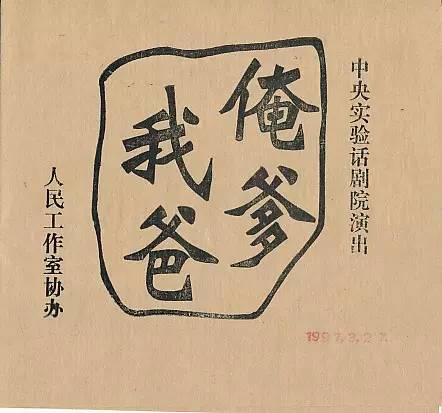 中央实验话剧院演出
俺爹
我爸
人民工作室协办
1997.3.27.